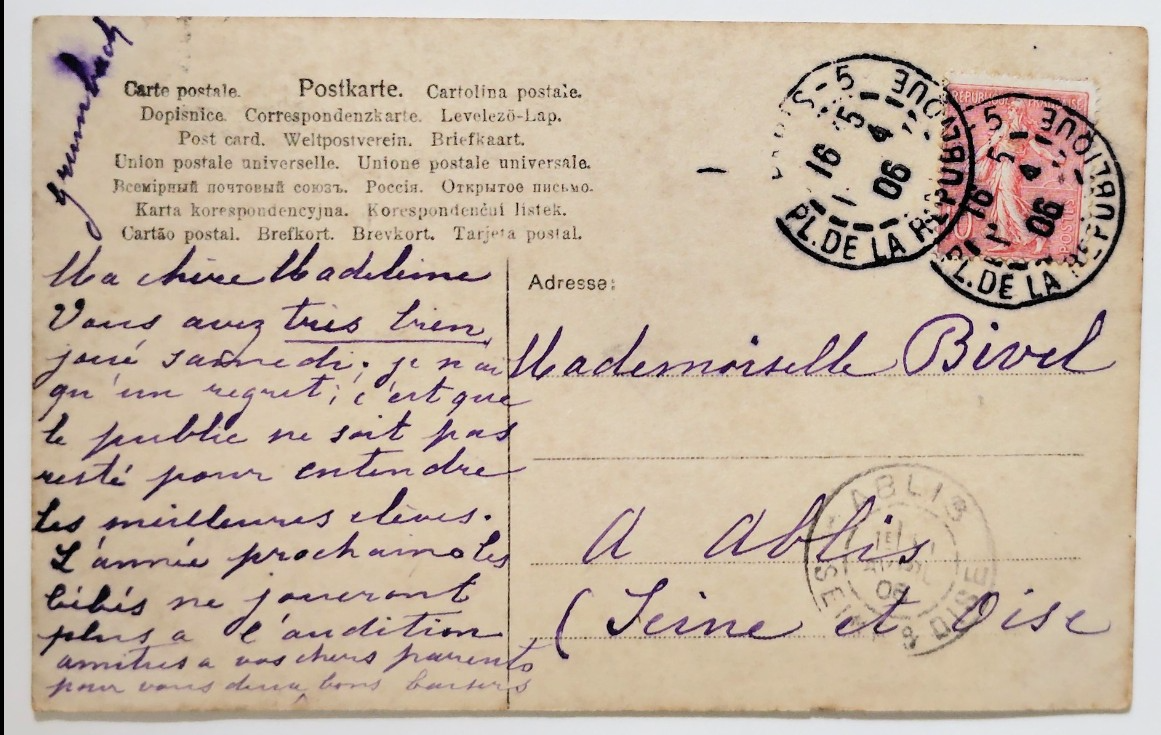 grumbach
Carte postale. Postkarte. Cartolina postale.
Dopisnice. Correspondenzkarte. Levelező-Lap.
Post card. Weltpostverein. Briefkaart.
Union postale universelle. Unione postale universale.
Всемірный почтовый союзъ. Россія. Открытое письмо.
Karta korespondencyjna. Korespondenční listek.
Cartão postal. Brefkort. Brevkort. Tarjeta postal.
REPUBLIQUE FRANÇAISE
POSTES
16 5
5 4
06
PL. DE LA REPUBLIQUE
16 5
5 4
06
PL. DE LA REPUBLIQUE
Ma chère Madeleine
Vous avez très bien
joué samedi; je n'ai
qu'un regret; c'est que
le public ne soit pas
resté pour entendre
les meilleures élèves.
L'année prochaine les
bébés ne joueront
plus a l'audition
amitiés a vos chers parents
pour vous deux bons baisers
Adresse:
Mademoiselle Bivel
A Ablis
(Seine et Oise
ABLIS
06
SEINE & OISE